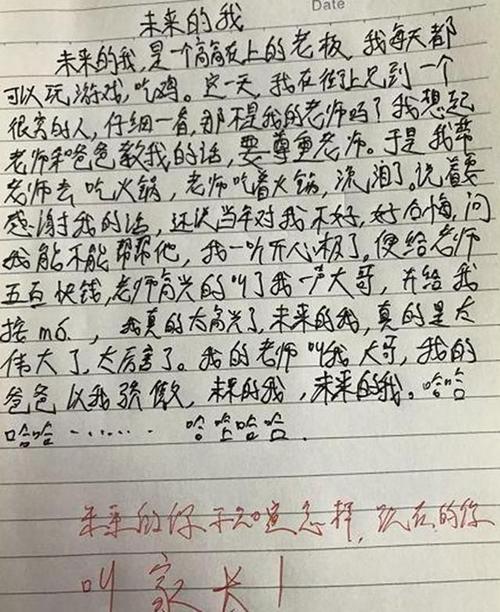 Date
未来的我
未来的我，是一个高高在上的老板，我每天都
可以玩游戏，吃鸡。这一天，我在街上见到一个
很穷的人，仔细一看，那不是我的老师吗？我想起
老师和爸爸教我的话，要尊重老师。于是我带
老师去吃火锅，老师吃着火锅，流泪了。说着要
感谢我的话，还说当年对我不好，好后悔，问
我能不能帮帮他，我一听开心极了。便给老师
五百块钱，老师高兴的叫了我一声大哥，并给我
接，我真的太高兴了，未来的我，真的是太
伟大了，太厉害了。我的老师叫我大哥，我的
爸爸以我骄傲，未来的我，未来的我。哈哈
哈哈……哈哈哈哈.
未来的你不知道怎样，现在的你
叫家长！